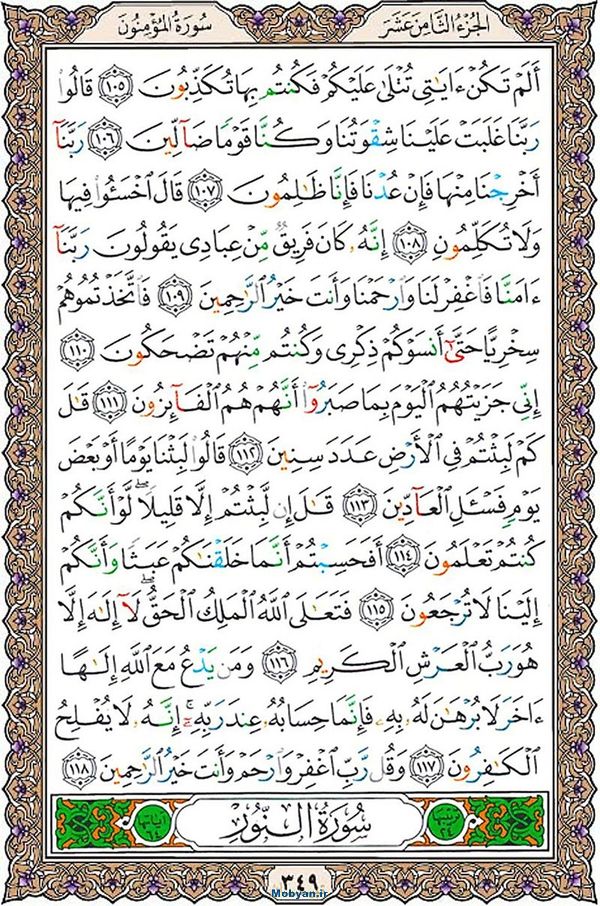 الجُزءُ الثَّامِنَ عَشَرَ
سُورَةُ المُؤْمِنُونَ
أَلَمْ تَكُنْ ءَايَٰتِي تُتْلَىٰ عَلَيْكُمْ فَكُنتُم بِهَا تُكَذِّبُونَ ١٠٥ قَالُوا۟
رَبَّنَا غَلَبَتْ عَلَيْنَا شِقْوَتُنَا وَكُنَّا قَوْمًا ضَآلِّينَ ١٠٦ رَبَّنَآ
أَخْرِجْنَا مِنْهَا فَإِنْ عُدْنَا فَإِنَّا ظَٰلِمُونَ ١٠٧ قَالَ ٱخْسَـُٔوا۟ فِيهَا
وَلَا تُكَلِّمُونِ ١٠٨ إِنَّهُۥ كَانَ فَرِيقٌ مِّنْ عِبَادِي يَقُولُونَ رَبَّنَآ
ءَامَنَّا فَٱغْفِرْ لَنَا وَٱرْحَمْنَا وَأَنتَ خَيْرُ ٱلرَّٰحِمِينَ ١٠٩ فَٱتَّخَذْتُمُوهُمْ
سِخْرِيًّا حَتَّىٰٓ أَنسَوْكُمْ ذِكْرِي وَكُنتُم مِّنْهُمْ تَضْحَكُونَ ١١٠
إِنِّي جَزَيْتُهُمُ ٱلْيَوْمَ بِمَا صَبَرُوٓا۟ أَنَّهُمْ هُمُ ٱلْفَآئِزُونَ ١١١ قَٰلَ
كَمْ لَبِثْتُمْ فِي ٱلْأَرْضِ عَدَدَ سِنِينَ ١١٢ قَالُوا۟ لَبِثْنَا يَوْمًا أَوْ بَعْضَ
يَوْمٍ فَسْـَٔلِ ٱلْعَآدِّينَ ١١٣ قَٰلَ إِن لَّبِثْتُمْ إِلَّا قَلِيلًا ۖ لَّوْ أَنَّكُمْ
كُنتُمْ تَعْلَمُونَ ١١٤ أَفَحَسِبْتُمْ أَنَّمَا خَلَقْنَٰكُمْ عَبَثًا وَأَنَّكُمْ
إِلَيْنَا لَا تُرْجَعُونَ ١١٥ فَتَعَٰلَى ٱللَّهُ ٱلْمَلِكُ ٱلْحَقُّ ۖ لَآ إِلَٰهَ إِلَّا
هُوَ رَبُّ ٱلْعَرْشِ ٱلْكَرِيمِ ١١٦ وَمَن يَدْعُ مَعَ ٱللَّهِ إِلَٰهًا
ءَاخَرَ لَا بُرْهَٰنَ لَهُۥ بِهِۦ فَإِنَّمَا حِسَابُهُۥ عِندَ رَبِّهِۦٓ ۚ إِنَّهُۥ لَا يُفْلِحُ
ٱلْكَٰفِرُونَ ١١٧ وَقُل رَّبِّ ٱغْفِرْ وَٱرْحَمْ وَأَنتَ خَيْرُ ٱلرَّٰحِمِينَ ١١٨
سُورَةُ النُّورِ
٣٤٩
Mobyan.ir